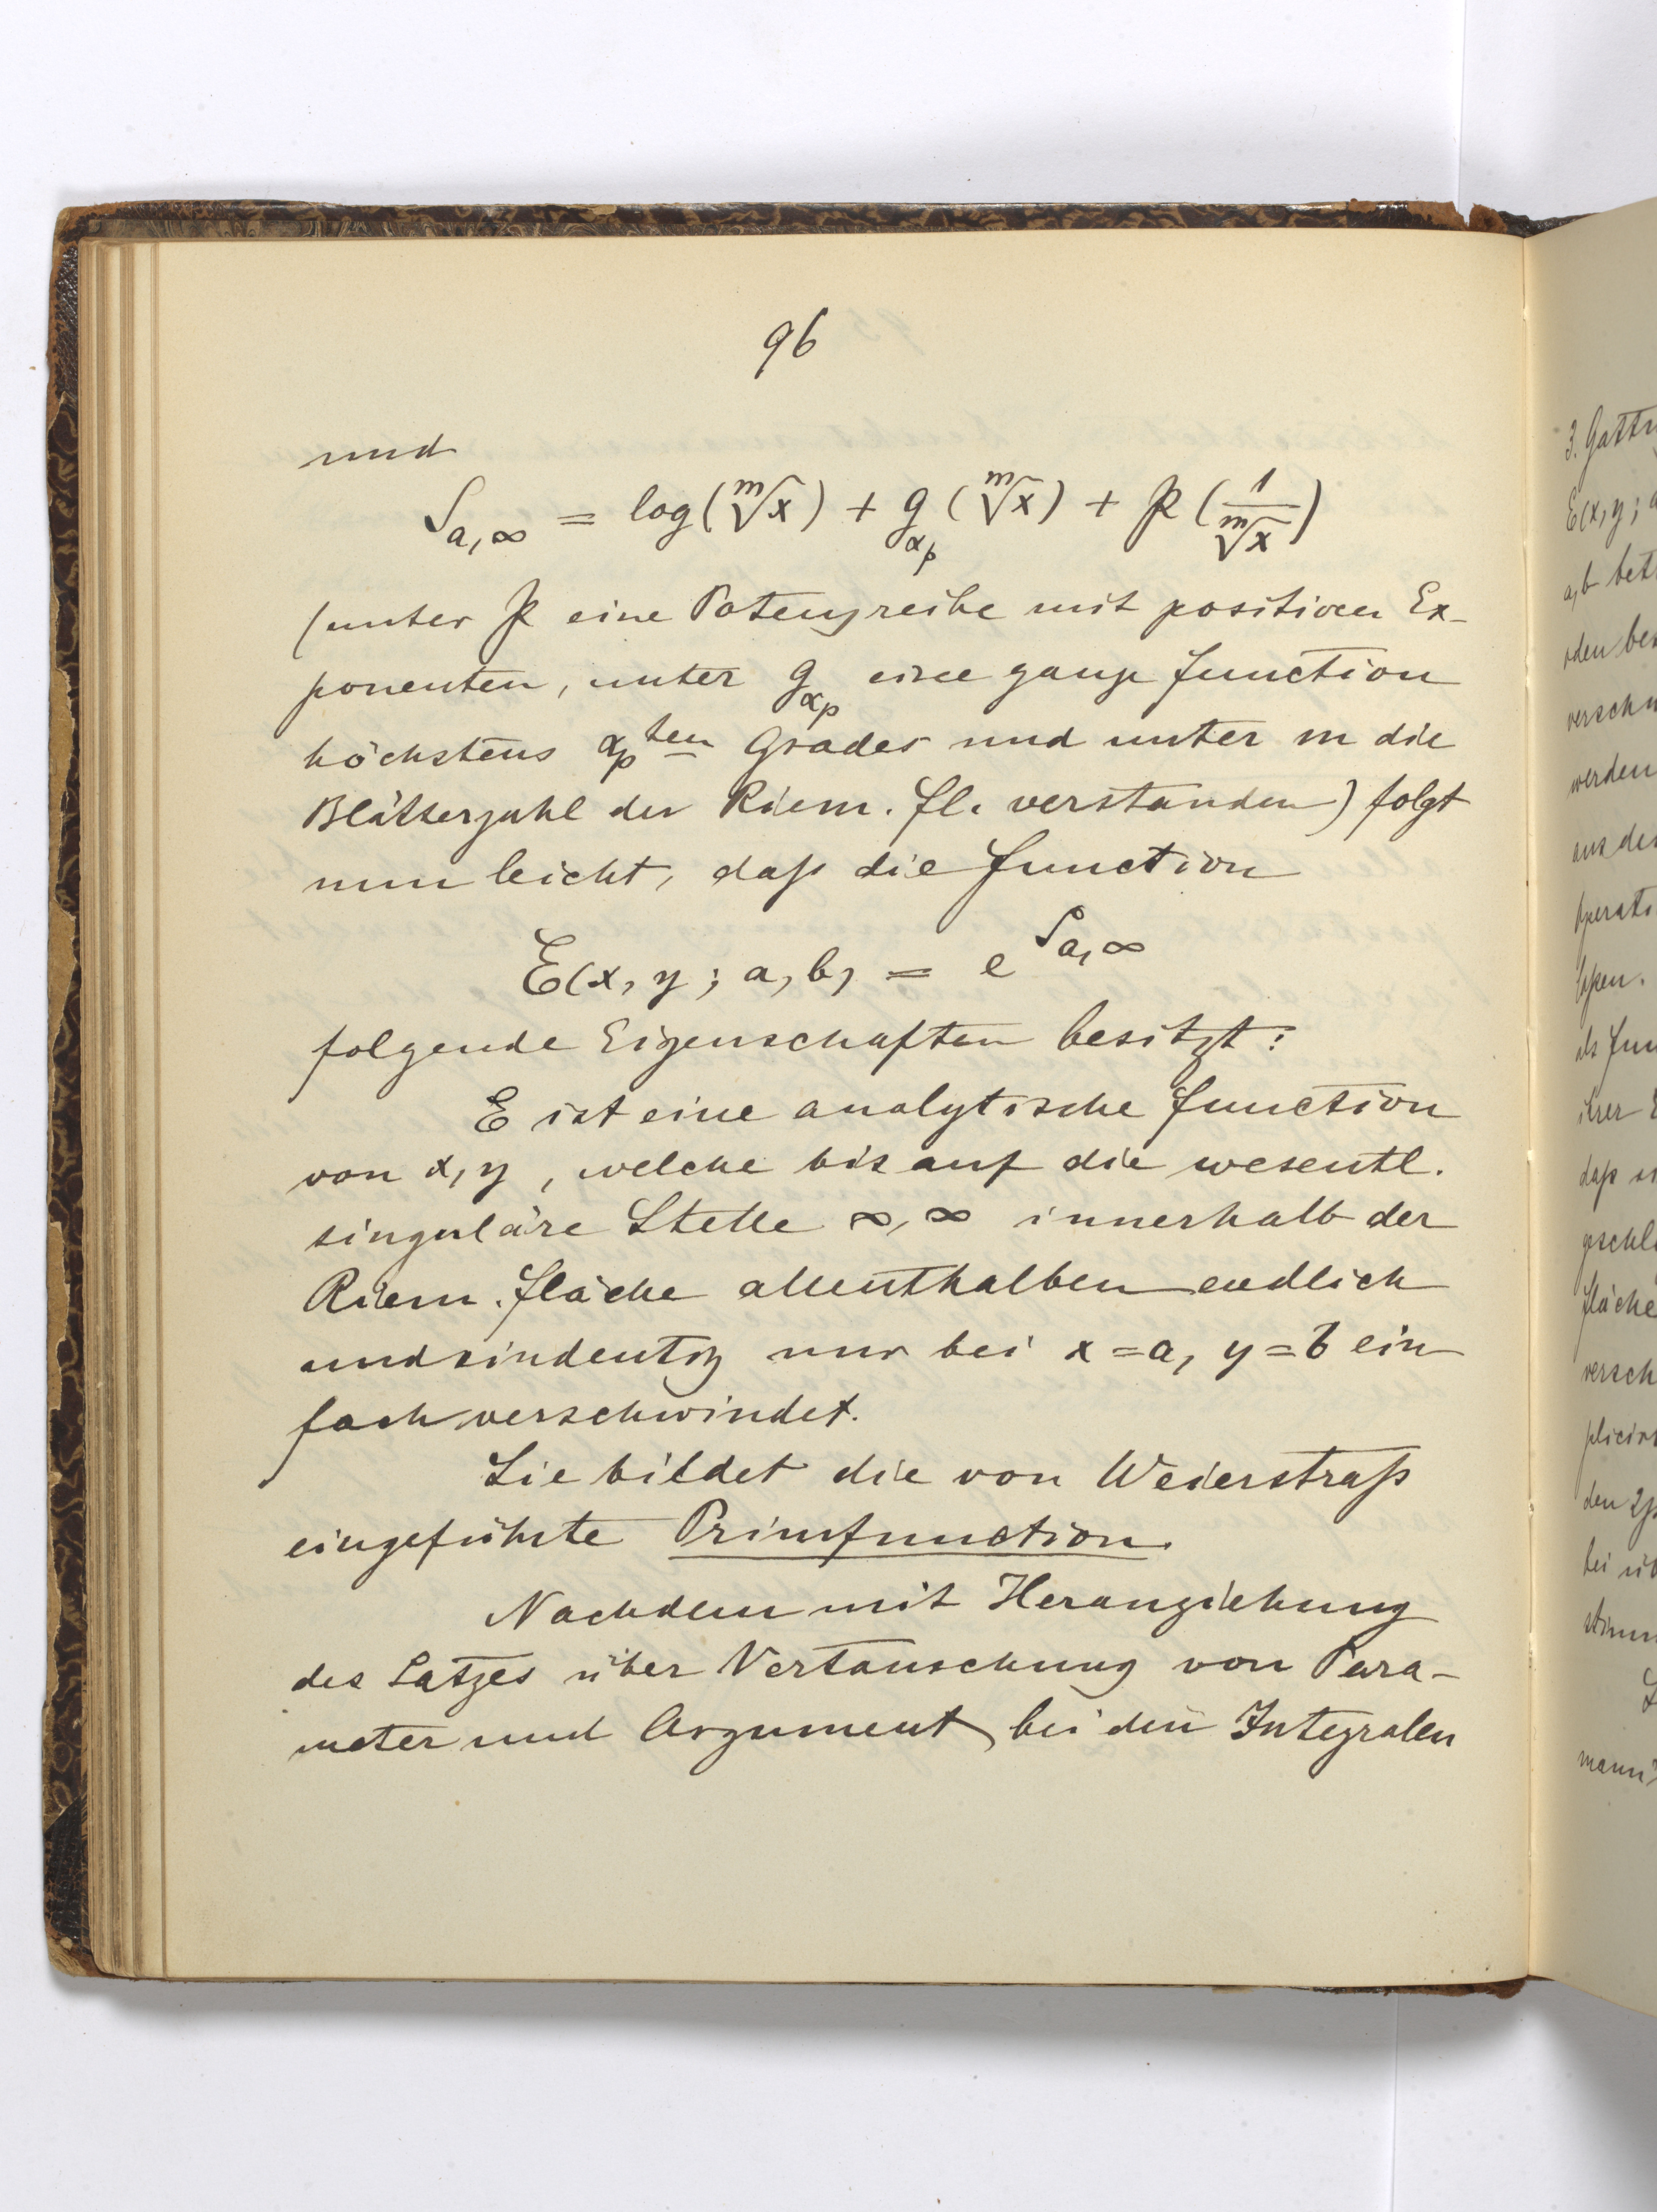 96
und
S_{a,∞} = log(\sqrt[m]{x}) + g_{α_p}(\sqrt[m]{x}) + P(\frac{1}{\sqrt[m]{x}})
(unter P eine Potenzreihe mit positiven Ex-
ponenten, unter g_{α_p} eine ganze Function
höchstens α_p^{ten} Grades und unter m die
Blätterzahl der Riem. Fl. verstanden) folgt
nun leicht, daß die Function
E(x, y; a, b) = e^{S_{a,∞}}
folgende Eigenschaften besitzt:
E ist eine analytische Function
von x, y, welche bis auf die wesentl.
singuläre Stelle ∞, ∞ innerhalb der
Riem. Fläche allenthalben endlich
und eindeutig nur bei x = a, y = b ein
fach verschwindet.
Sie bildet die von Weierstraß
eingeführte Primfunction.
Nachdem mit Heranziehung
des Satzes über Vertauschung von Para-
meter und Argument bei den Integralen
3. Gattu
E(x, y; a
a, b bet
den bes
verschw
werden
aus de
Operati
lassen.
als Fun
ihrer E
daß si
geschl
fläche
versch
plicirt
den 2p
bei üb
stimm
mann